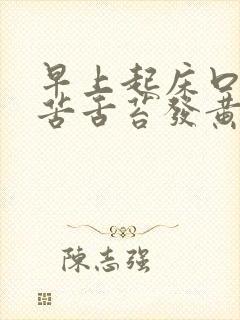 早上起床口
苦舌苔發黃
陈志强